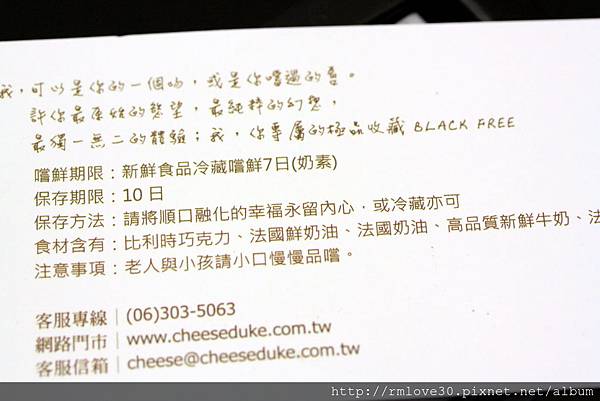 我，可以是你的一個吻，或是你嚐過的唇。
許你最原始的慾望，最純粹的幻想，
最獨一無二的體驗；我，你專屬的極品收藏 BLACK FREE
嚐鮮期限：新鮮食品冷藏嚐鮮7日(奶素)
保存期限：10 日
保存方法：請將順口融化的幸福永留內心，或冷藏亦可
食材含有：比利時巧克力、法國鮮奶油、法國奶油、高品質新鮮牛奶、法
注意事項：老人與小孩請小口慢慢品嚐。
客服專線｜(06)303-5063
網路門市｜www.cheeseduke.com.tw
客服信箱｜cheese@cheeseduke.com.tw
http://rmlove30.pixnet.net/album